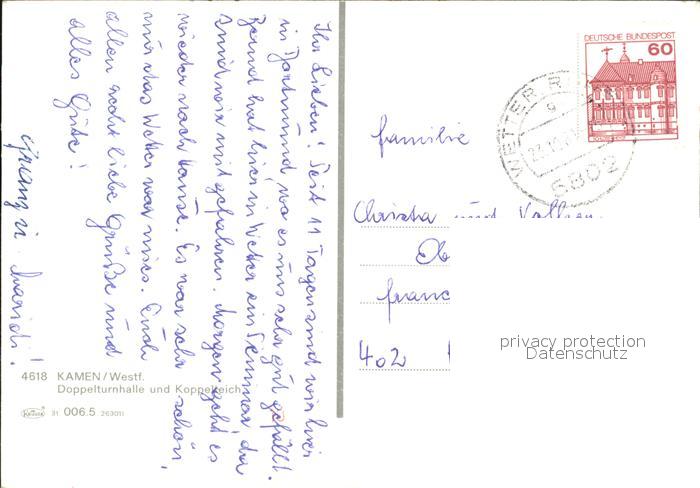 Ihr Lieben! Seit 11 Tagen sind wir hier
in Dortmund, wo es uns sehr gut gefällt.
Bernd hat hier in Wetter ein Seminar, da
sind wir mitgefahren. Morgen geht es
wieder nach Hause. Es war sehr schön,
nur das Wetter war mies. Euch
allen recht liebe Grüße und
alles Gute!
DEUTSCHE BUNDESPOST
60
WETTER
5802
Familie
Christa und
402
privacy protection
Datenschutz
4618 KAMEN/Westf.
Doppelturnhalle und Koppelteich
Krüger 31 006.5 26301)